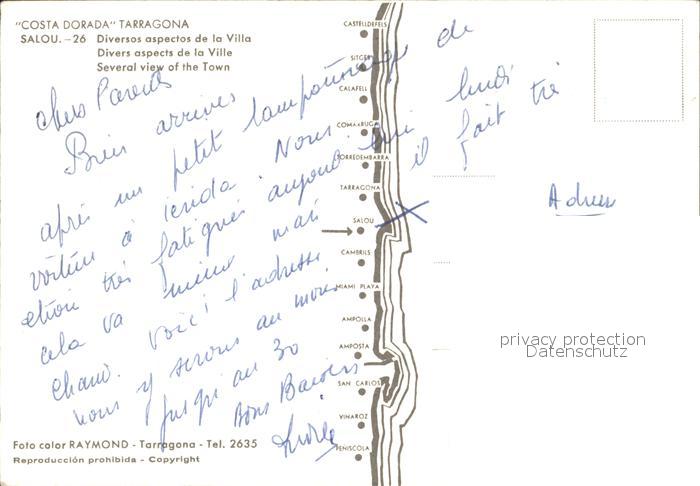 "COSTA DORADA" TARRAGONA
SALOU. - 26 Diversos aspectos de la Villa
Divers aspects de la Ville
Several view of the Town
Chers Parents
Bien arrivés
après un petit tamponnage de
voiture à lerida. Nous
etion très fatigués aujourd'hui lundi
cela va mieux mais il fait très
chaud. Voici l'adresse
nous y serons au moins
jusqu'au 30
Bons Baisers
CASTELLDEFELS
SITGES
CALAFELL
COMARRUGA
TORREDEMBARRA
TARRAGONA
SALOU
CAMBRILS
MIAMI PLAYA
AMPOLLA
AMPOSTA
SAN CARLOS
VINAROZ
PENISCOLA
privacy protection
Datenschutz
Foto color RAYMOND - Tarragona - Tel. 2635
Reproducción prohibida - Copyright